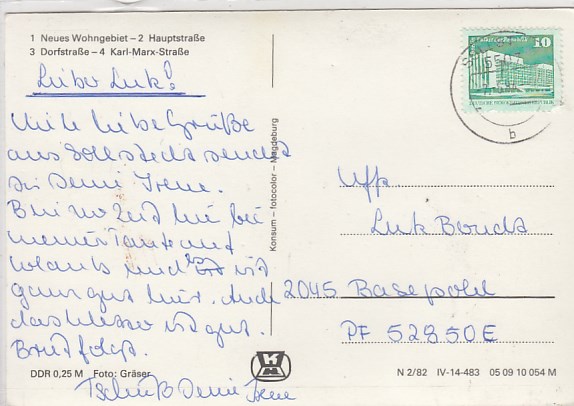 1 Neues Wohngebiet – 2 Hauptstraße
3 Dorfstraße – 4 Karl-Marx-Straße
Lieber Luk!
Viele liebe Grüße
aus Sollstedt sendet
dir Deine Irene.
Bin zur Zeit hie bei
meiner Tante auf
Urlaub und es ist
ganz gut hier. Auch
das Wetter ist gut.
Brief folgt.
Tschüß Deine Irene
DDR 0,25 M Foto: Gräser
Konsum – fotocolor – Magdeburg
10
b
Uffz.
Luk
2045 Basepohl
PF 52850 E
N 2/82 IV-14-483 05 09 10 054 M